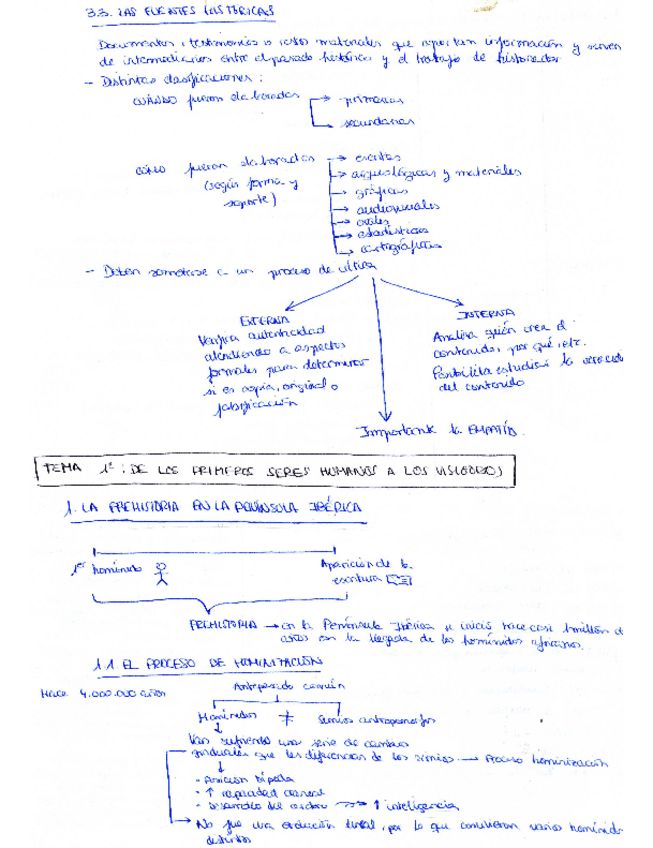 3.3. LAS FUENTES HISTÓRICAS
Documentos, testimonios o restos materiales que aportan información y sirven
de intermediarios entre el pasado histórico y el trabajo de historiador
- Distintas clasificaciones:
CUÁNDO fueron elaboradas → primarias
secundarias
CÓMO fueron elaboradas → escritas
(según forma y → arqueológicas y materiales
soporte) → gráficas
→ audiovisuales
→ orales
→ estadísticas
→ cartográficas
- Deben someterse a un proceso de crítica
EXTERNA
Verifica autenticidad
atendiendo a aspectos
formales para determinar
si es copia, original o
falsificación
INTERNA
Analiza quién crea el
contenido, por qué, etc.
Posibilita estudiar la veracidad
del contenido
Importante la EMPATÍA.
TEMA 1º: DE LOS PRIMEROS SERES HUMANOS A LOS VISIGODOS
1. LA PREHISTORIA EN LA PENÍNSULA IBÉRICA
1er homínido
Aparición de la
escritura
PREHISTORIA → en la Península Ibérica se inició hace casi 1 millón de
años con la llegada de los homínidos africanos.
1.1 EL PROCESO DE HOMINIZACIÓN
Hace 4.000.000 años
Antepasado común
Homínidos ≠ Simios antropomorfos
Van sufriendo una serie de cambios
graduales que les diferencian de los simios → Proceso hominización
- Posición bípeda
- ↑ capacidad craneal
- Desarrollo del cerebro → ↑ inteligencia
→ No fue una evolución lineal, por lo que convivieron varios homínidos
distintos